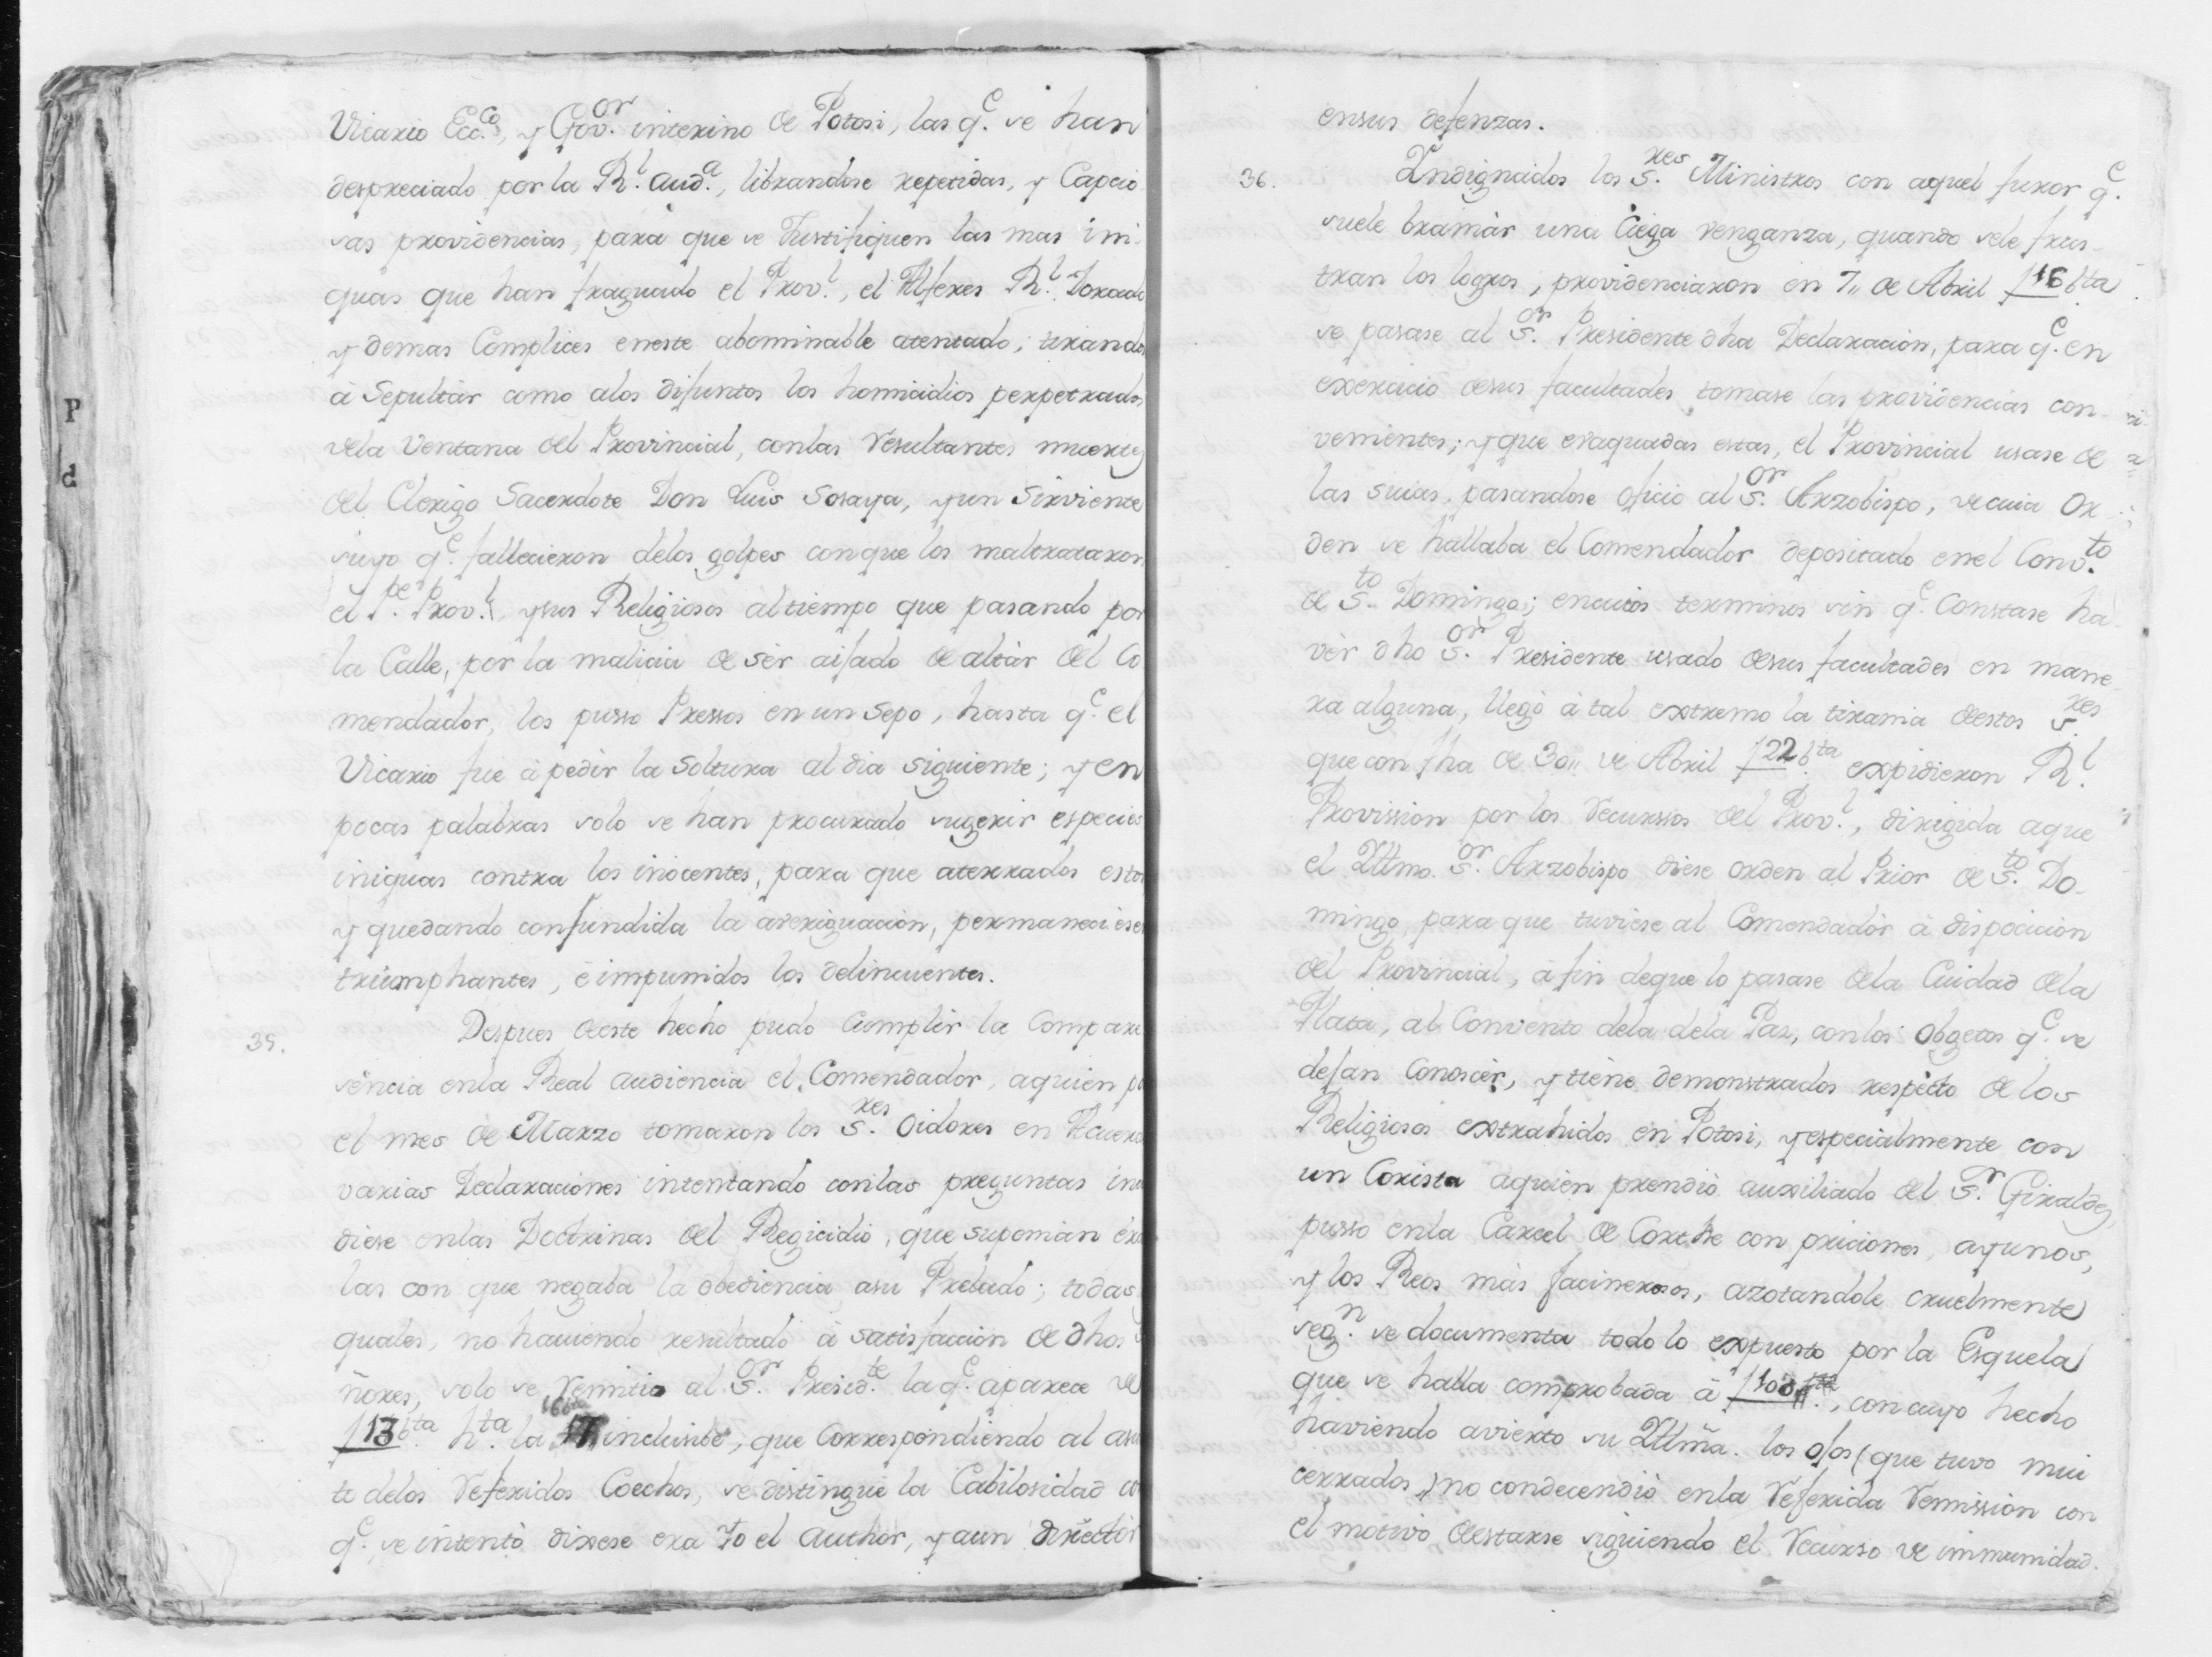 Vicario Ecc.co, y Gov.or interino de Potosi, las q.e se han
despreciado por la R.l Aud.a, librandose repetidas, y Capcio
sas providencias, para que se Justifiquen las mas ini-
quas que han fraguado el Prov.l, el Alferes R.l Dorado
y demas Complices eneste abominable atentado; tirando
à Sepultàr como alos difuntos los homicidios perpetrados
dela Ventana del Provincial, conlas Resultantes muertes
del Clerigo Sacerdote Don Luis Soraya, yun Sirviente
suyo q.e fallecieron delos golpes conque los maltrataron
el P.e Prov.l, ysus Religiosos altiempo que pasando por
la Calle, por la malicia de sèr aijado de altàr del Co
mendador, los pusso Pressos en un Sepo, hasta q.e el
Vicario fue à pedir la Soltura al dia siguiente; y en
pocas palabras solo se han procurado sugerir especies
iniquas contra los inocentes, para que aterrados estos
y quedando confundida la averiguacion, permaneciesen
triumphantes, è impunidos los delincuentes.
35. Despues deeste hecho pudo Cumplir la Compare
sencia enla Real Audiencia el Comendador, aquien p
el mes de Marzo tomaron los S.res Oidores en Acuerd
varias Declaraciones intentando conlas preguntas in
diese enlas Doctrinas del Regicidio, que suponian èra
las con que negaba la obediencia asu Prelado; todas
quales, no haviendo resultado à satisfaccion de dhos
ñores, solo se Remitio al S.or Presid.te la q.e aparece de
f 13 b.ta h.ta la 17 inclusibe, que Correspondiendo al asu
to delos Referidos Coechos, se distingue la Cabilosidad co
q.e se intentò dixese era Yo el Author, y aun director
ensus defenzas.
36. Indignados los S.res Ministros con aquel furor q.e
suele bramàr una Ciega venganza, quando sele frus-
tran los logros, providenciaron en 7,, de Abril f 16 b.ta
se pasase al S.or Presidente dha Declaracion, para q.e en
exercicio desus facultades tomase las providencias con-
venientes; y que evaquadas estas, el Provincial usase de
las suias, pasandose oficio al S.or Arzobispo, de cuia Or
den se hallaba el Comendador depositado enel Conv.to
de S.to Domingo; encuios terminos sin q.e Constase ha-
vèr dho S.or Presidente usado desus facultades en mane
ra alguna, llegò à tal extremo la tirania deestos S.res
que con fha de 30,, de Abril f 22 b.ta expidieron R.l
Provission por los Recurssos del Prov.l, dirigida aque
el Illmo. S.or Arzobispo diese orden al Prior de S.to Do-
mingo, para que tuviese al Comendadòr à dispocicion
del Provincial, à fin deque lo pasase dela Cuidad dela
Plata, al Convento dela dela Paz, conlos Obgetos q.e se
dejan Conoscèr, y tiene demonstrados respècto de los
Religiosos extrahidos en Potosi, y especialmente con
un Corista aquien prendiò auxiliado del S.r Giraldez
pusso enla Carcel de Corthe con priciones, ayunos,
y los Reos màs facinerosos, azotandole cruelmente
seg.n se documenta todo lo expuesto por la Esquela
que se halla comprobada à f 100, con cuyo hecho
haviendo avierto su Illmã. los ojos (que tuvo mui
cerrados) no condecendiò enla Referida Remission con
el motivo deestarse siguiendo el Recurso de immunidad.